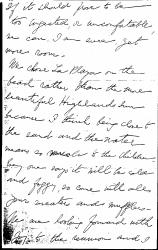 if it should prove to be
too crowded or uncomfortable
we can I am sure get
more room.
We chose La Playa on the
beach rather than the more
beautiful Highlands Inn
because I think being close to
the sand and the water
means so much to the children
Any one way it will be cold
and foggy, so come with all
your sweaters and mufflers
looking forward with
to the reunion and